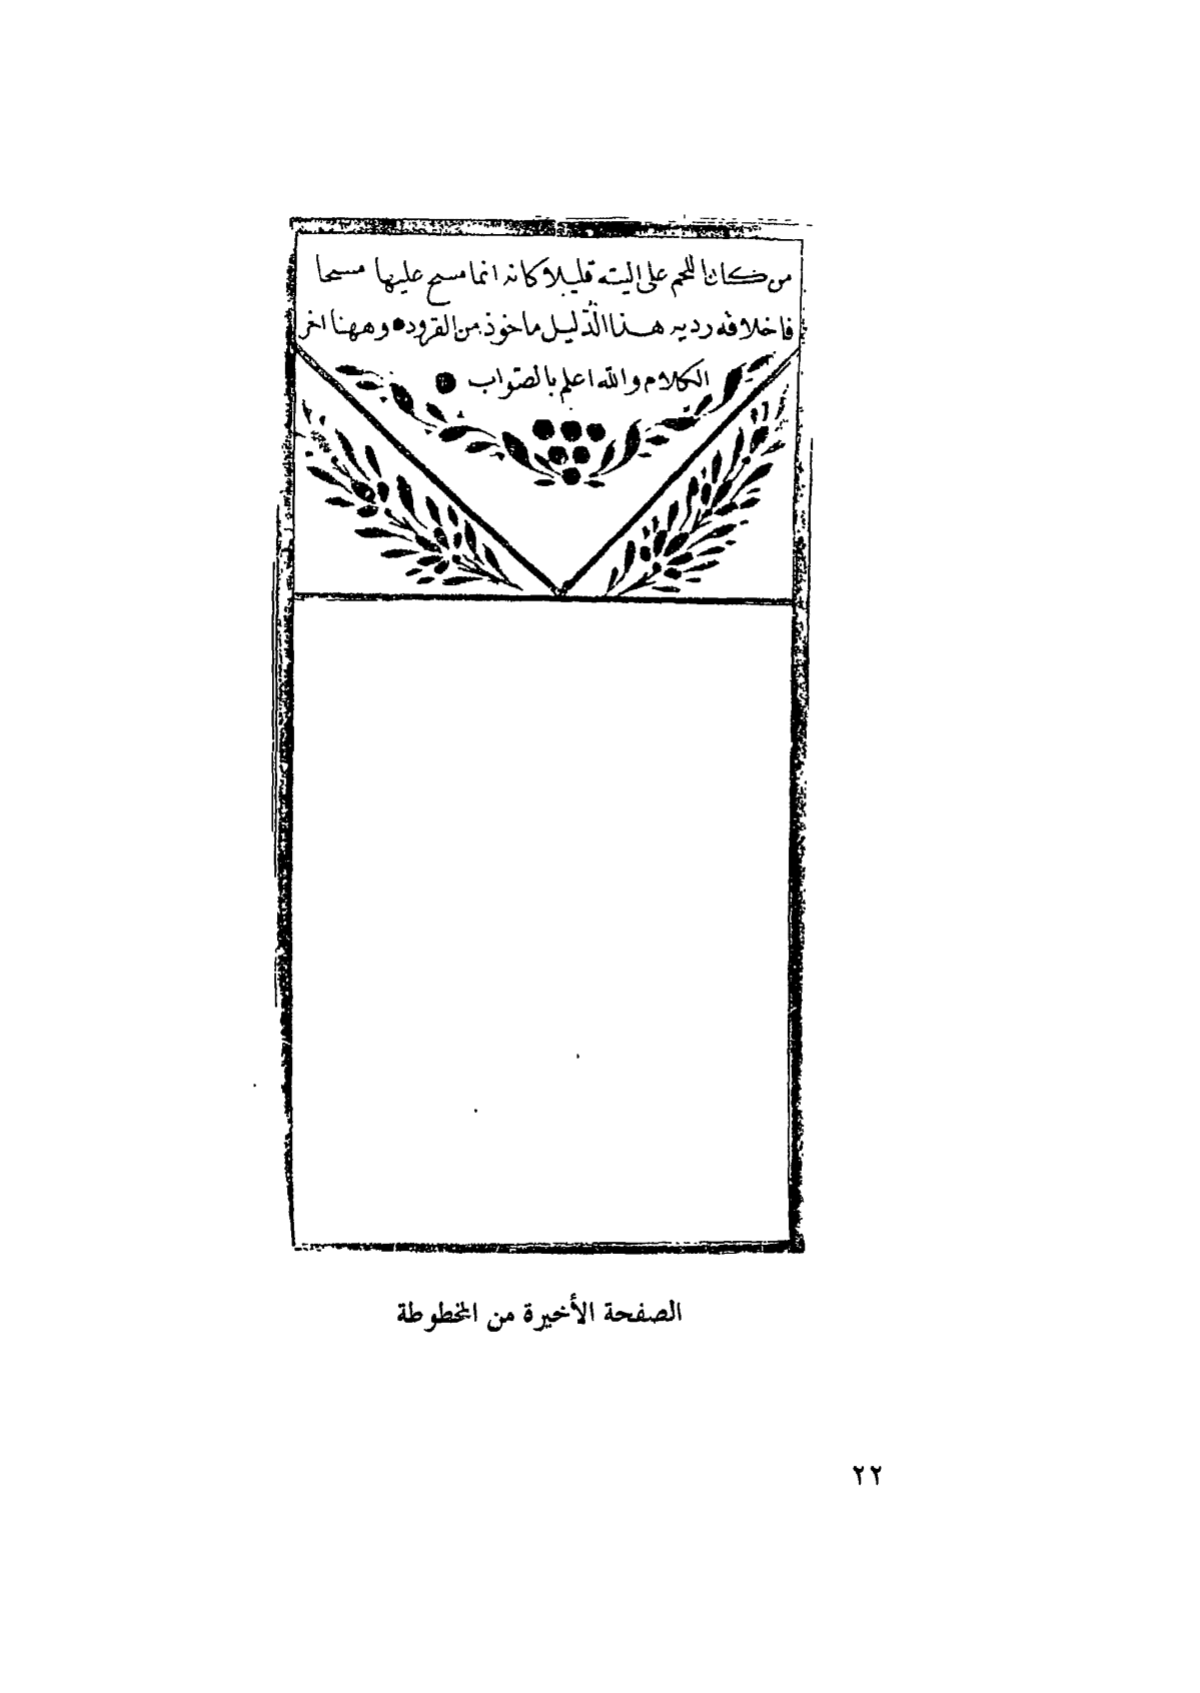 من كان اللحم على اليته قليلا كانه انما مسح عليها مسحا
فاخلاقه رديه هذا الدّليل ماخوذ من القرود • وههنا اخر
الكلام والله اعلم بالصّواب •
الصفحة الأخيرة من المخطوطة
٢٢